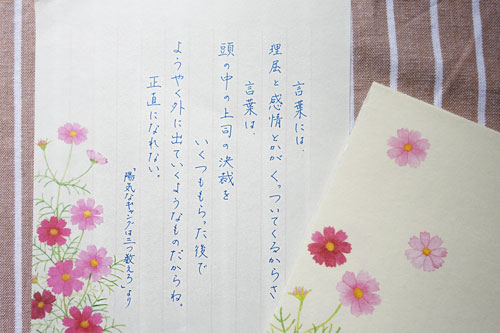 言葉には、
理屈と感情とかがくっついてくるからさ
言葉は、
頭の中の上司の決裁を
いくつももらった後で
ようやく外に出ていくようなものだからね。
正直になれない。
「陽気なギャングは三つ数えろ」より